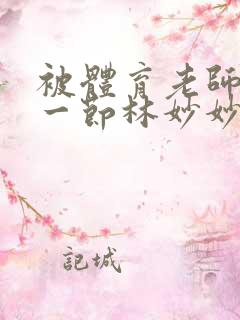 被體育老師
一節林妙妙
記城